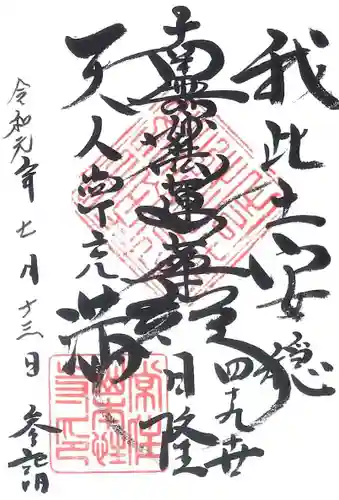 我此土安穏
南無妙法蓮華経
四十九世
日隆
天人常充満
令和元年七月十三日
参詣